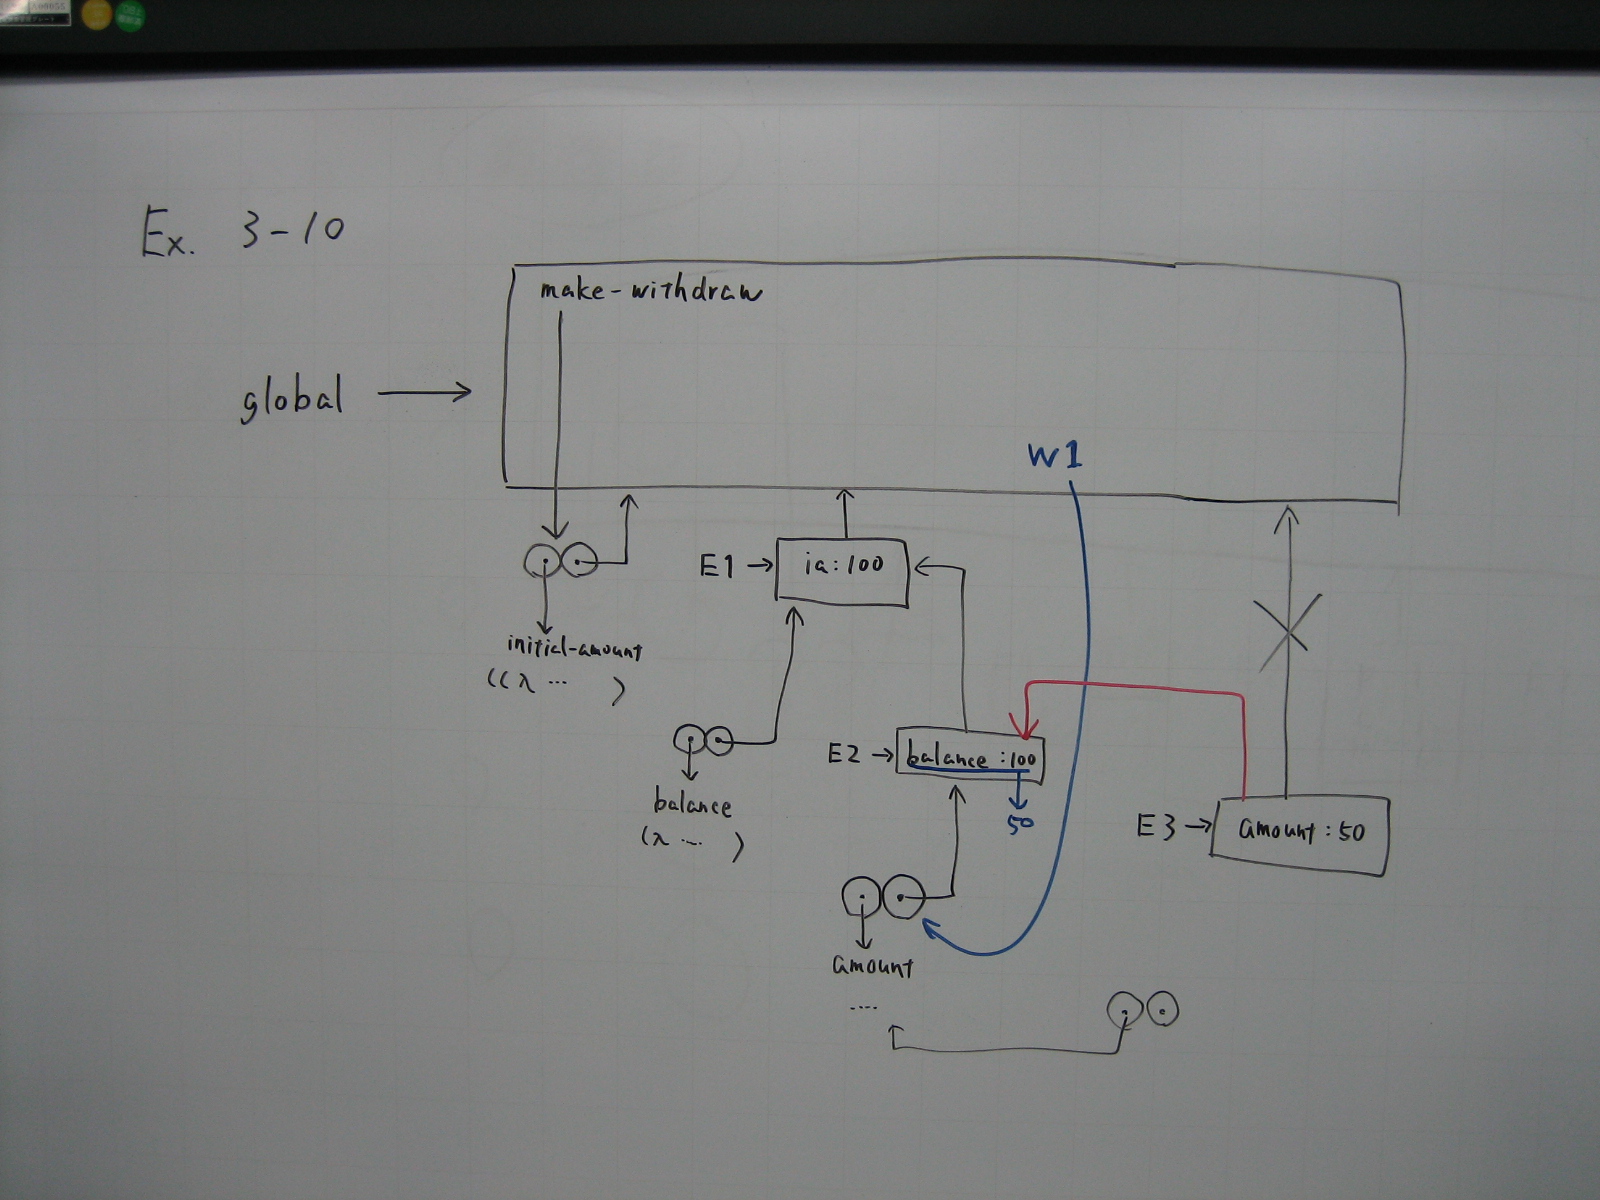 Ex. 3-10
make-withdraw
global
W1
E1
ia:100
initial-amount
((λ ... )
E2
balance :100
50
balance
(λ ... )
E3
amount:50
amount
....